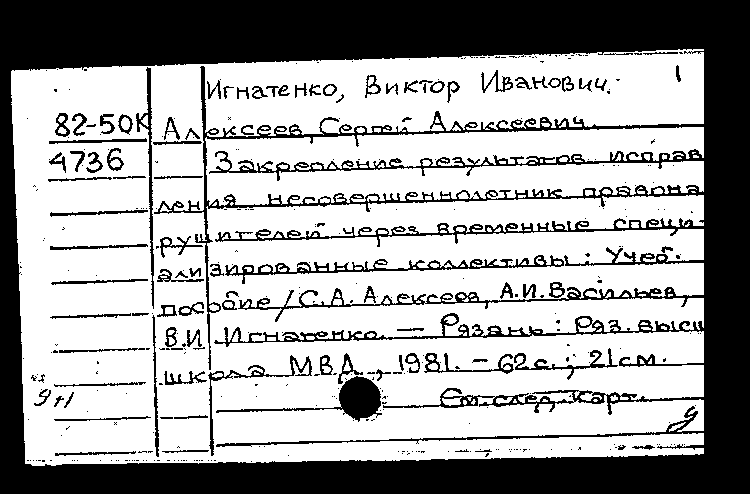 Игнатенко, Виктор Иванович. 1
82-50К Алексеев, Сергей Алексеевич.
4736 Закрепление результатов исправ
ления несовершеннолетник правона
рушителей через временные специ-
ализированные коллективы : Учеб.
пособие / С.А. Алексеев, А.И. Васильев,
В.И Игнатенко. — Рязань : Ряз. высш
школа МВД, 1981. - 62 с. ; 21 см.
9+1 См. след. карт.